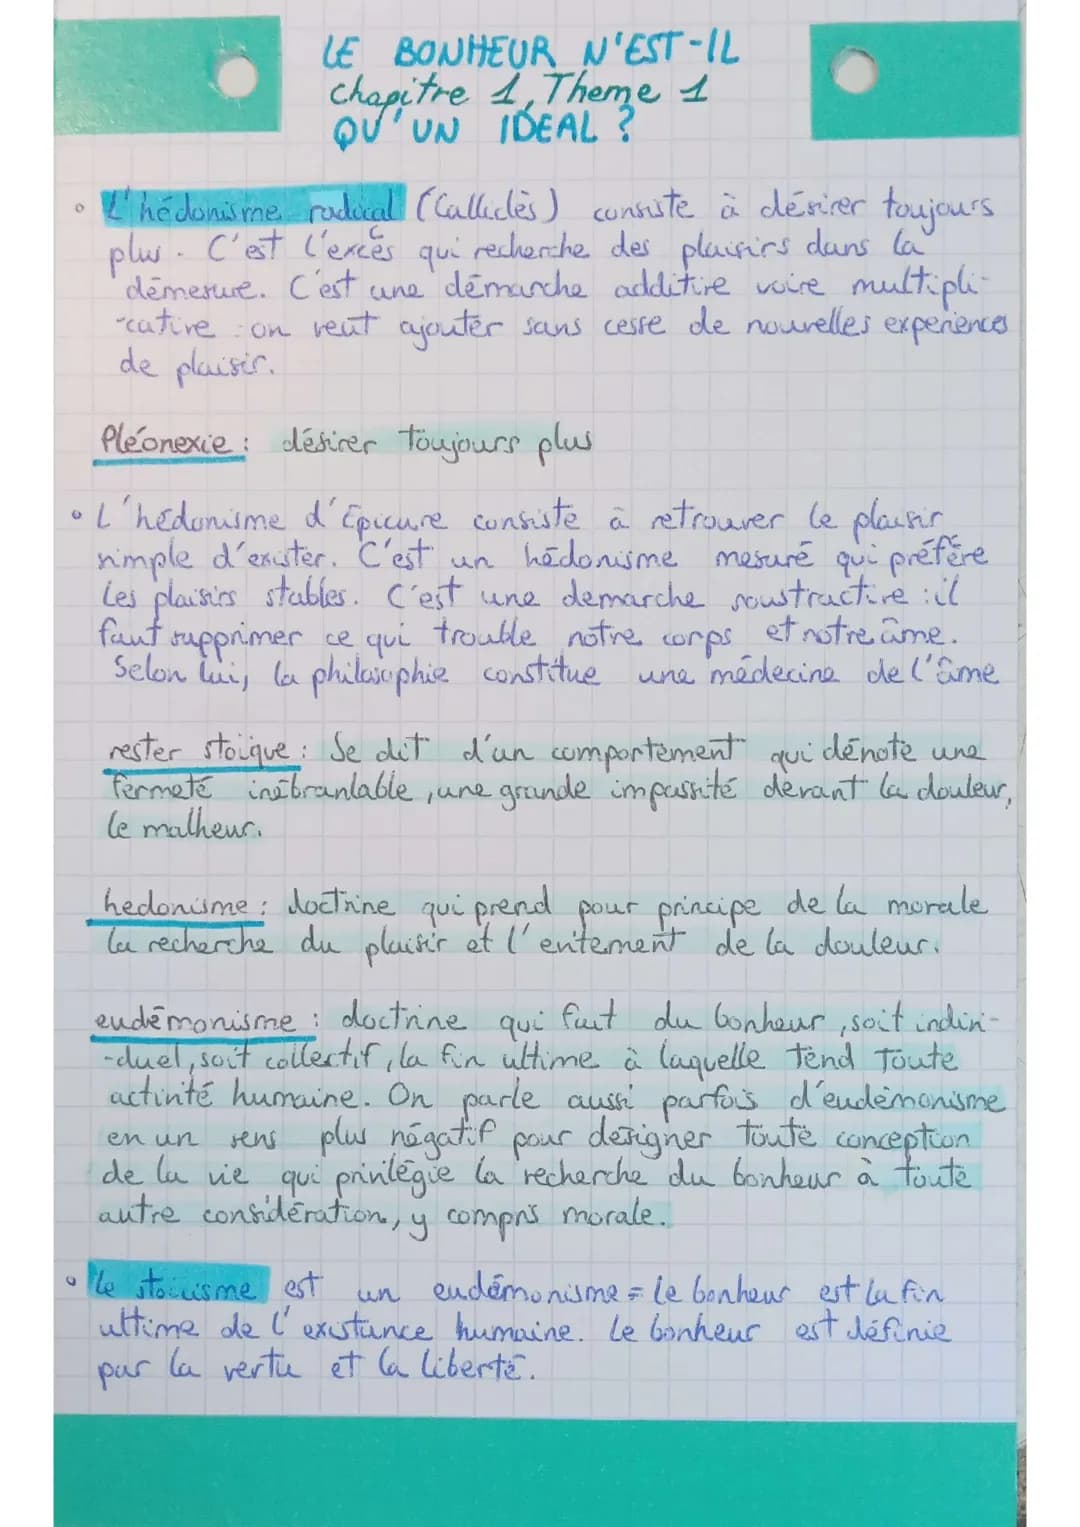 LE BONHEUR N'EST-IL
Chapitre 1, Theme 1
QU'UN IDEAL ?
• L'hédonisme radical (Calliclès) consiste à désirer toujours
plus. C'est l'excès qui recherche des plaisirs dans la
démesure. C'est une démarche additive voire multipli-
-cative : on veut ajouter sans cesse de nouvelles experiences
de plaisir.
Pléonexie : désirer toujours plus
• L'hédonisme d'Epicure consiste à retrouver le plaisir
simple d'exister. C'est un hédonisme mesuré qui préfère
les plaisirs stables. C'est une demarche soustractive : il
faut supprimer ce qui trouble notre corps et notre âme.
Selon lui, la philosophie constitue une médecine de l'âme
rester stoïque : Se dit d'un comportement qui dénote une
fermeté inébranlable, une grande impassité devant la douleur,
le malheur.
hedonisme : doctrine qui prend pour principe de la morale
la recherche du plaisir et l'evitement de la douleur.
eudémonisme : doctrine qui fait du bonheur, soit indivi-
-duel, soit collectif, la fin ultime à laquelle tend toute
activité humaine. On parle aussi parfois d'eudémonisme
en un sens plus négatif pour designer toute conception
de la vie qui privilégie la recherche du bonheur à toute
autre considération, y compris morale.
• Le stoicisme est un eudémonisme = le bonheur est la fin
ultime de l'existance humaine. Le bonheur est définie
par la vertu et la liberté.